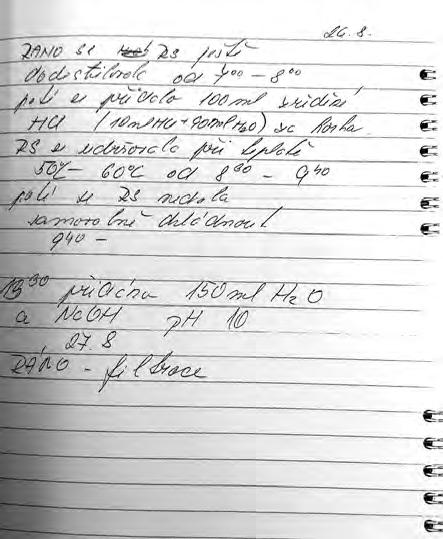 26.8.
RÁNO se RS ještě
dodestilovala od 7⁰⁰ - 8⁰⁰
poté se přidalo 100ml zředěné
HCl (10ml HCl + 90ml H₂O) za horka.
RS se udržovala při teplotě
50°C - 60°C od 8⁰⁰ - 9⁴⁰
poté se RS nechala
samovolně chládnout
9⁴⁰ -
13³⁰ přidáno 150ml H₂O
a NaOH pH 10
27.8
RÁNO - filtrace